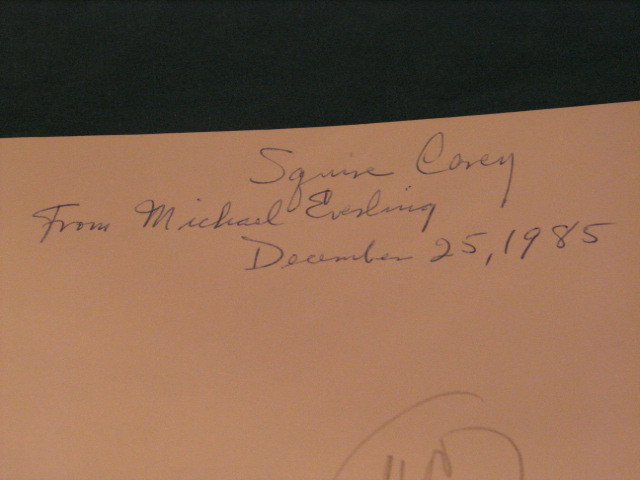 Squire Corey
From Michael Everling
December 25, 1985